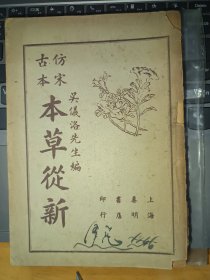 仿宋
古本
吳儀洛先生編
本草從新
上海
春明
書店
印行